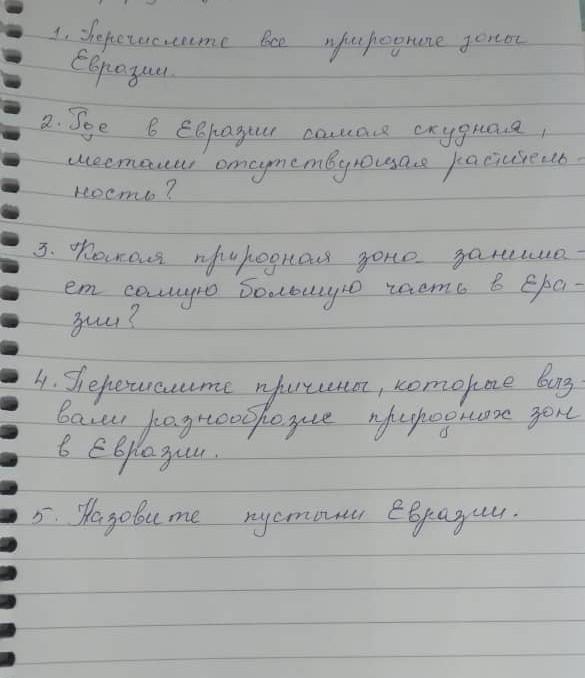 1. Перечислите все природные зоны
Евразии.
2. Где в Евразии самая скудная,
местами отсутствующая раститель-
ность?
3. Какая природная зона занима-
ет самую большую часть в Ера-
зии?
4. Перечислите причины, которые выз-
вали разнообразие природных зон
в Евразии.
5. Назовите пустыни Евразии.